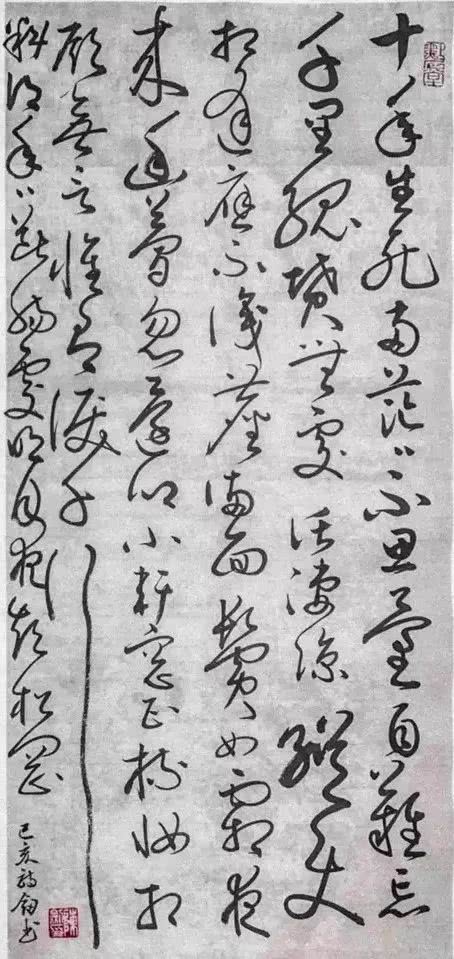 十年生死兩茫茫不思量自難忘
千里孤墳無處話淒涼縱使
相逢應不識塵滿面鬢如霜夜
來幽夢忽還鄉小軒窗正梳妝相
顧無言惟有淚千行
料得年年斷腸處明月夜短松岡
己亥書